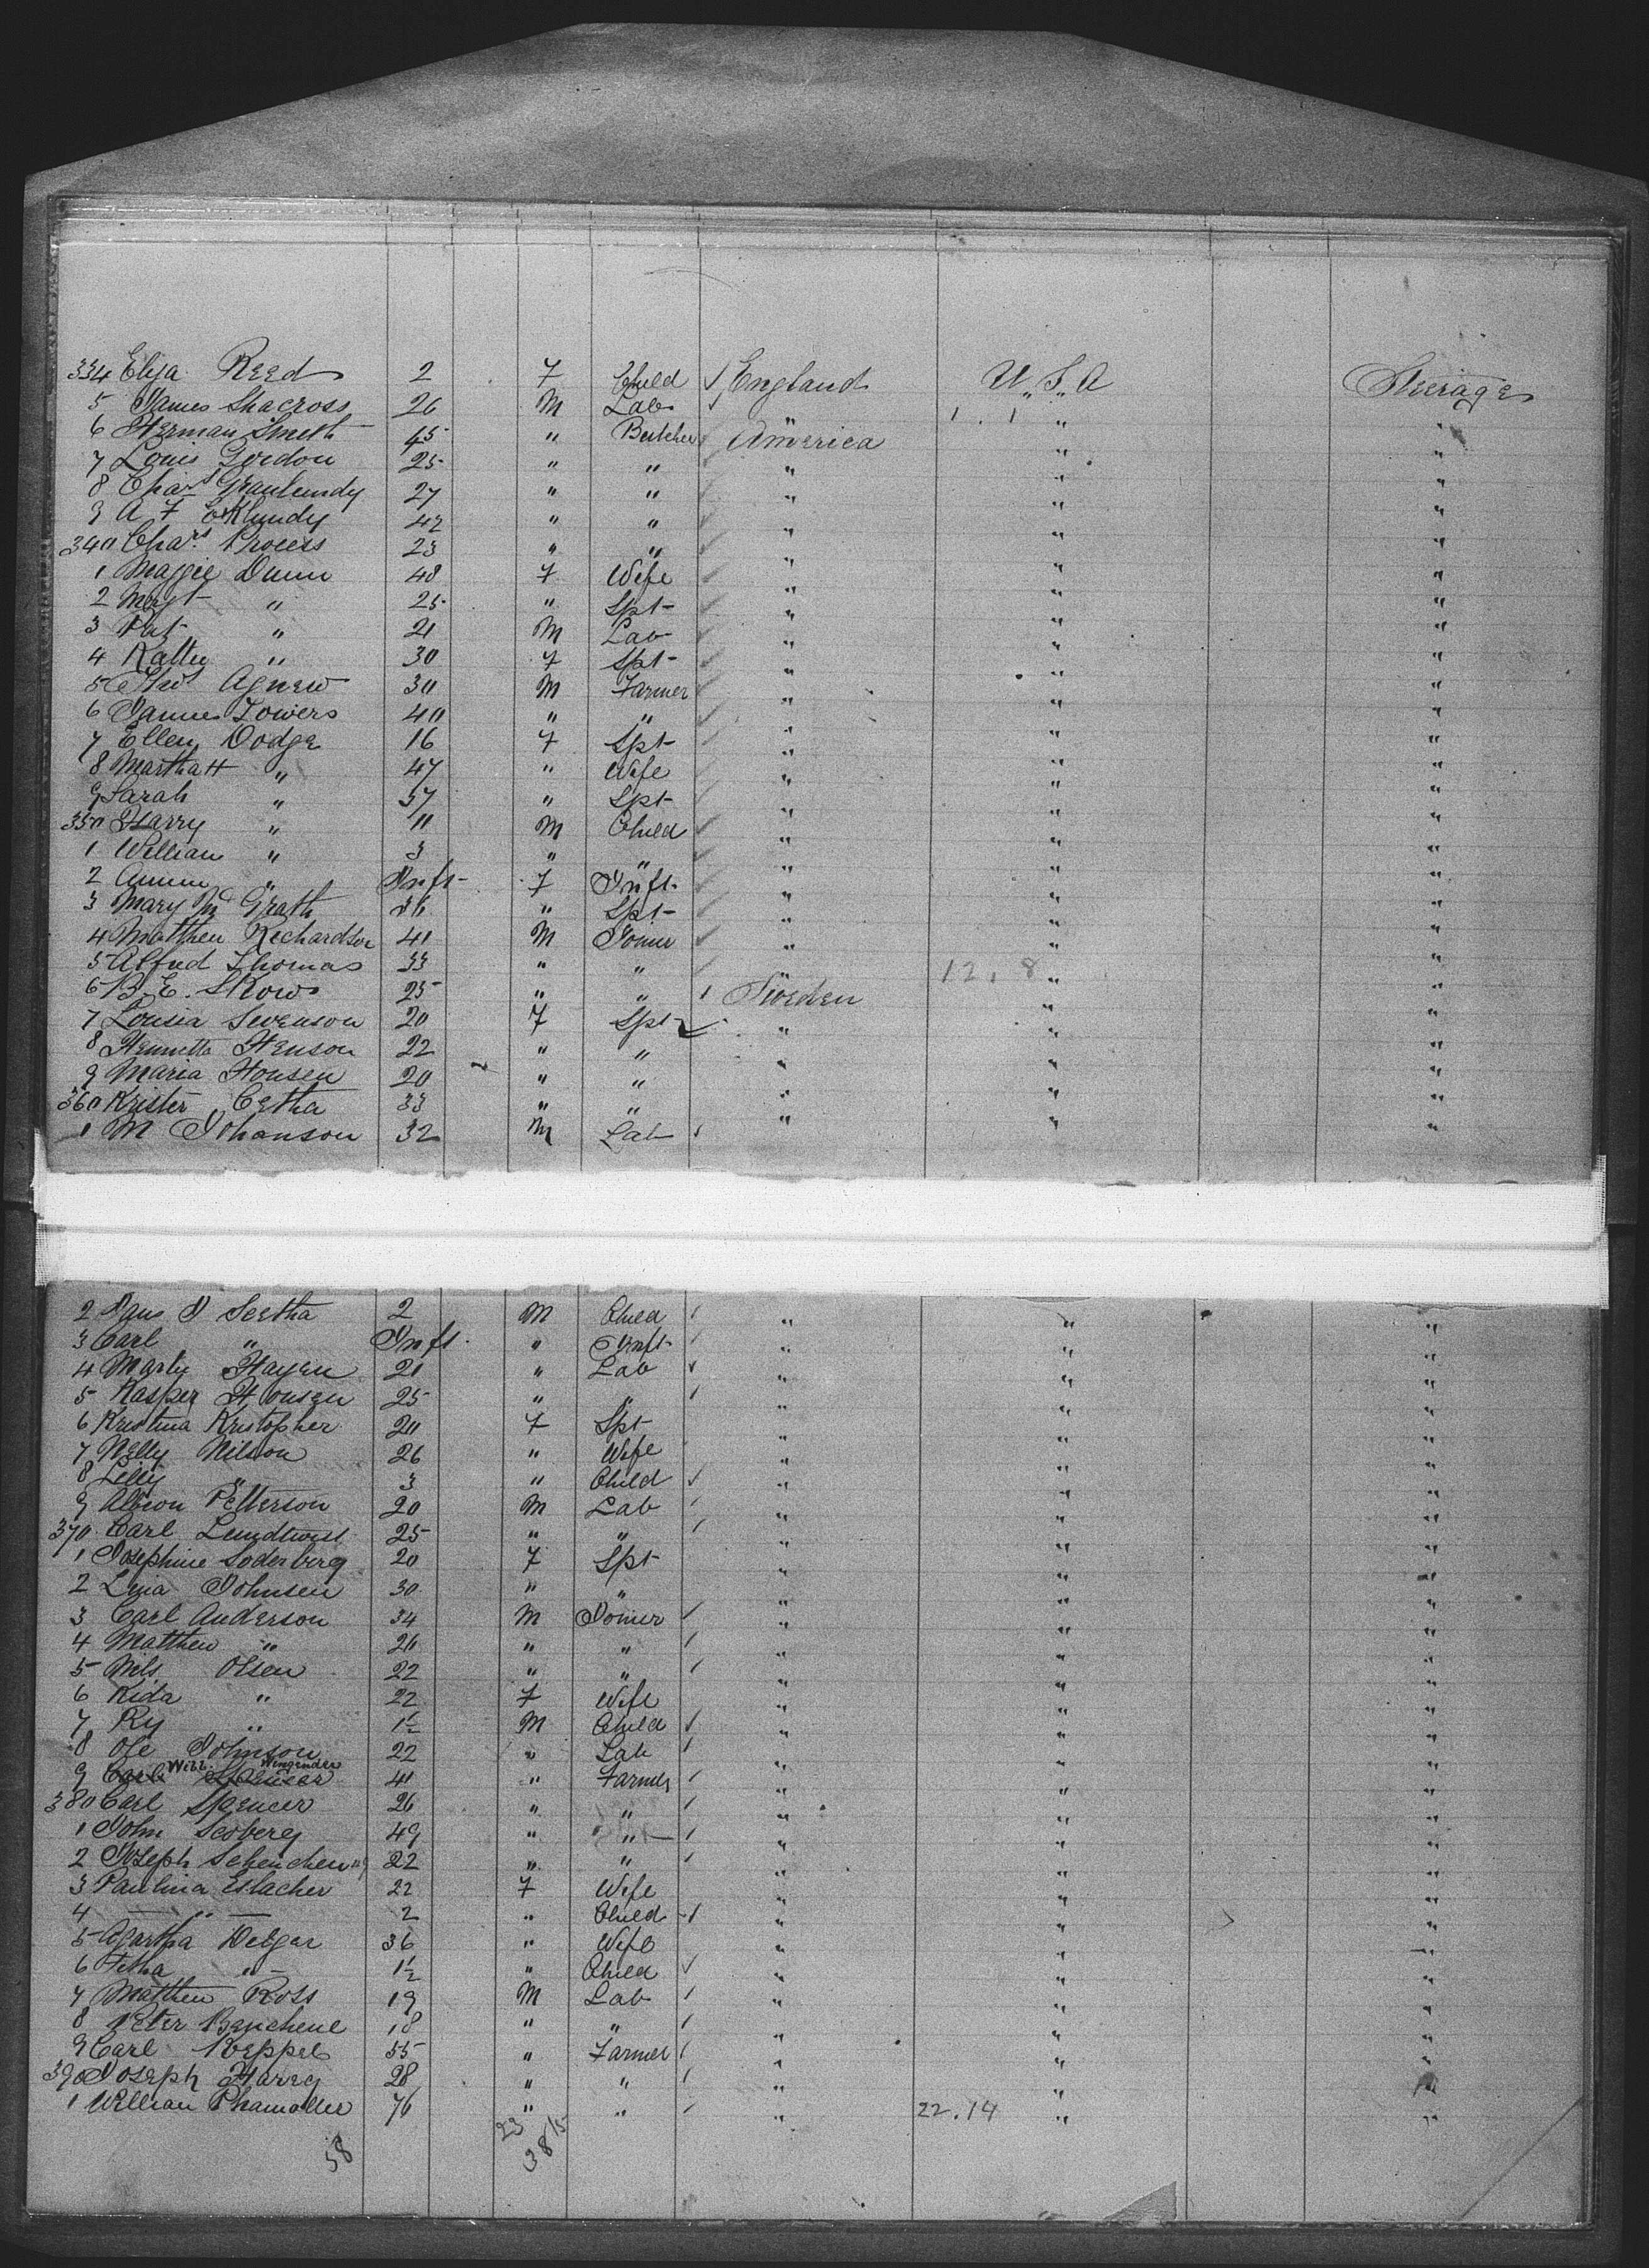 334 Eliza Reed 2 F Child England U.S.A Steerage
5 James Shacross 26 M Lab " " "
6 Herman Smith 45 " Butcher America " "
7 Louis Gordon 25 " " " " "
8 Chas 27 " " " " "
9 A F Eklundy 42 " " " " "
340 Chas. Process 23 " " " " "
1 Maggie Dunn 48 F Wife " " "
2 " 25 " Spt " " "
3 Pat " 21 M Lab " " "
4 " 30 F Spt " " "
5 Thos Agnew 30 M Farmer " " "
6 James Towers 40 " " " " "
7 Ellen Dodge 16 F Spt " " "
8 Martha H " 47 " Wife " " "
9 Sarah " 37 " Spt " " "
350 Harry " 11 M Child " " "
1 William " 3 " " " " "
2 " Inft F Inft " " "
3 Mary McGrath " Spt " " "
4 Matthew Richardson 41 M Joiner " " "
5 Alfred Thomas 33 " " " 12.8 " "
6 B. E. Skow 25 " " Sweden " "
7 Lousia Swenson 20 F Spt " " "
8 Hennetta Henson 22 " " " " "
9 Maria Honsen 20 " " " " "
360 Krister Certha 33 " " " " "
1 M Johanson 32 M Lab " " "
2 Sertha 2 M Child " " "
3 Carl " Inft " Inft " " "
4 Hayen 21 " Lab " " "
5 Kasper Honsen 25 " " " " "
6 Kristina Kristopher 20 F Spt " " "
7 Nelly Nilson 26 " Wife " " "
8 Lilly " 3 " Child " " "
9 Albion Petterson 20 M Lab " " "
370 Carl Lundtwist 25 " " " " "
1 Josephine Soderberg 20 F Spt " " "
2 Johnsen 30 " " " " "
3 Carl Anderson 34 M Joiner " " "
4 Matthew " 20 " " " " "
5 Nils Olsen 22 " " " " "
6 Kida " 22 F Wife " " "
7 Ry " 1½ M Child " " "
8 Ole Johnson 22 " Lab " " "
Will. Wingender
9 Carl Spencer 41 " Farmer " " "
380 Carl Spencer 26 " " " " "
1 John Seoberg 49 " " " " "
2 Joseph 22 " " " " "
3 Paulina Eslacher 22 F Wife " " "
4 — " — 2 " Child " " "
5 Agartha Delger 36 " Wife " " "
6 Fetha " 1½ " Child " " "
7 Matthew Ross 19 M Lab " " "
8 Peter 18 " " " " "
9 Carl Keppel 55 " Farmer " " "
390 Joseph Harrg 28 " " " " "
1 William 76 " " " 22.14 " "
23 15
58 38